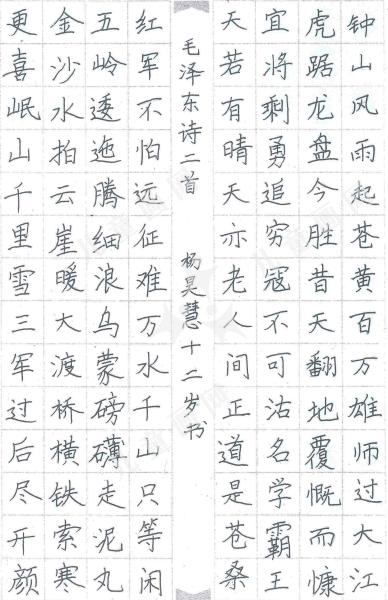 钟山风雨起苍黄百万雄师过大江
虎踞龙盘今胜昔天翻地覆慨而慷
宜将剩勇追穷寇不可沽名学霸王
天若有晴天亦老人间正道是苍桑
毛泽东诗二首 杨昊慧十二岁书
红军不怕远征难万水千山只等闲
五岭逶迤腾细浪乌蒙磅礴走泥丸
金沙水拍云崖暖大渡桥横铁索寒
更喜岷山千里雪三军过后尽开颜